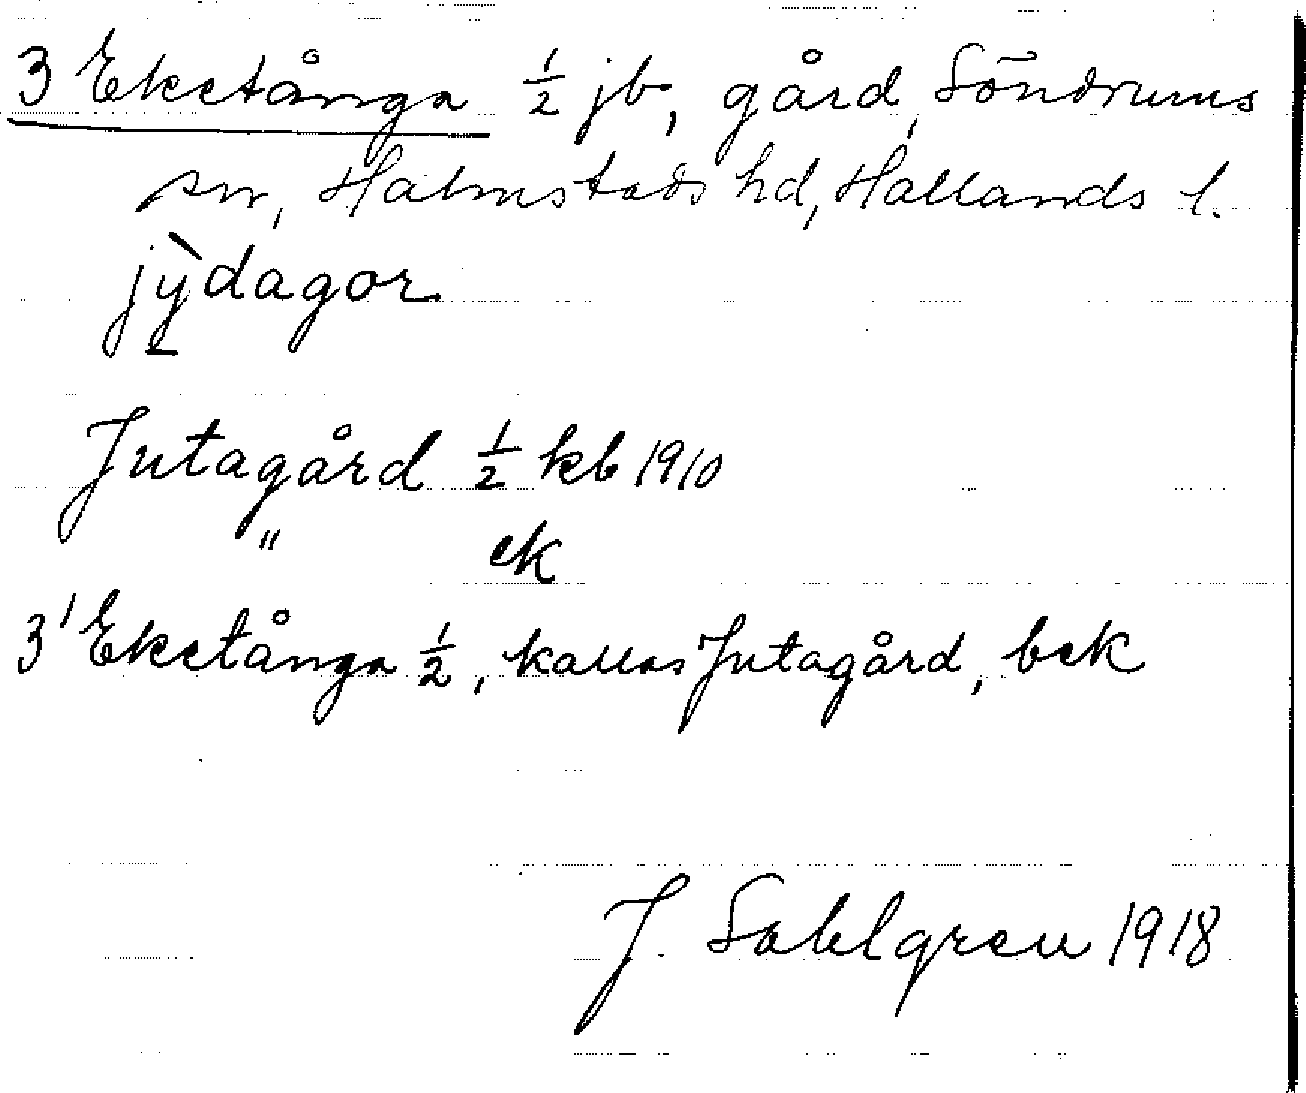 3 Eketånga 1/2 jb, gård, Söndrums
sn, Halmstads hd, Hallands l.
jỳ̲dagor
Jutagård 1/2 kb 1910
" ek
3¹ Eketånga 1/2, kallas Jutagård, bek
J. Sahlgren 1918